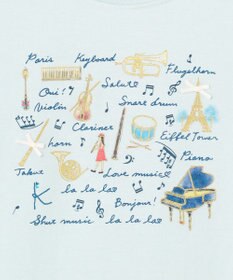 Paris Keyboard
Flugelhorn
Oui! Salute
Violin Snare drum
Clarinet
horn Eiffel Tower
Piano
Takut Love music
K la la la la
Bonjour!
Shut music la la la